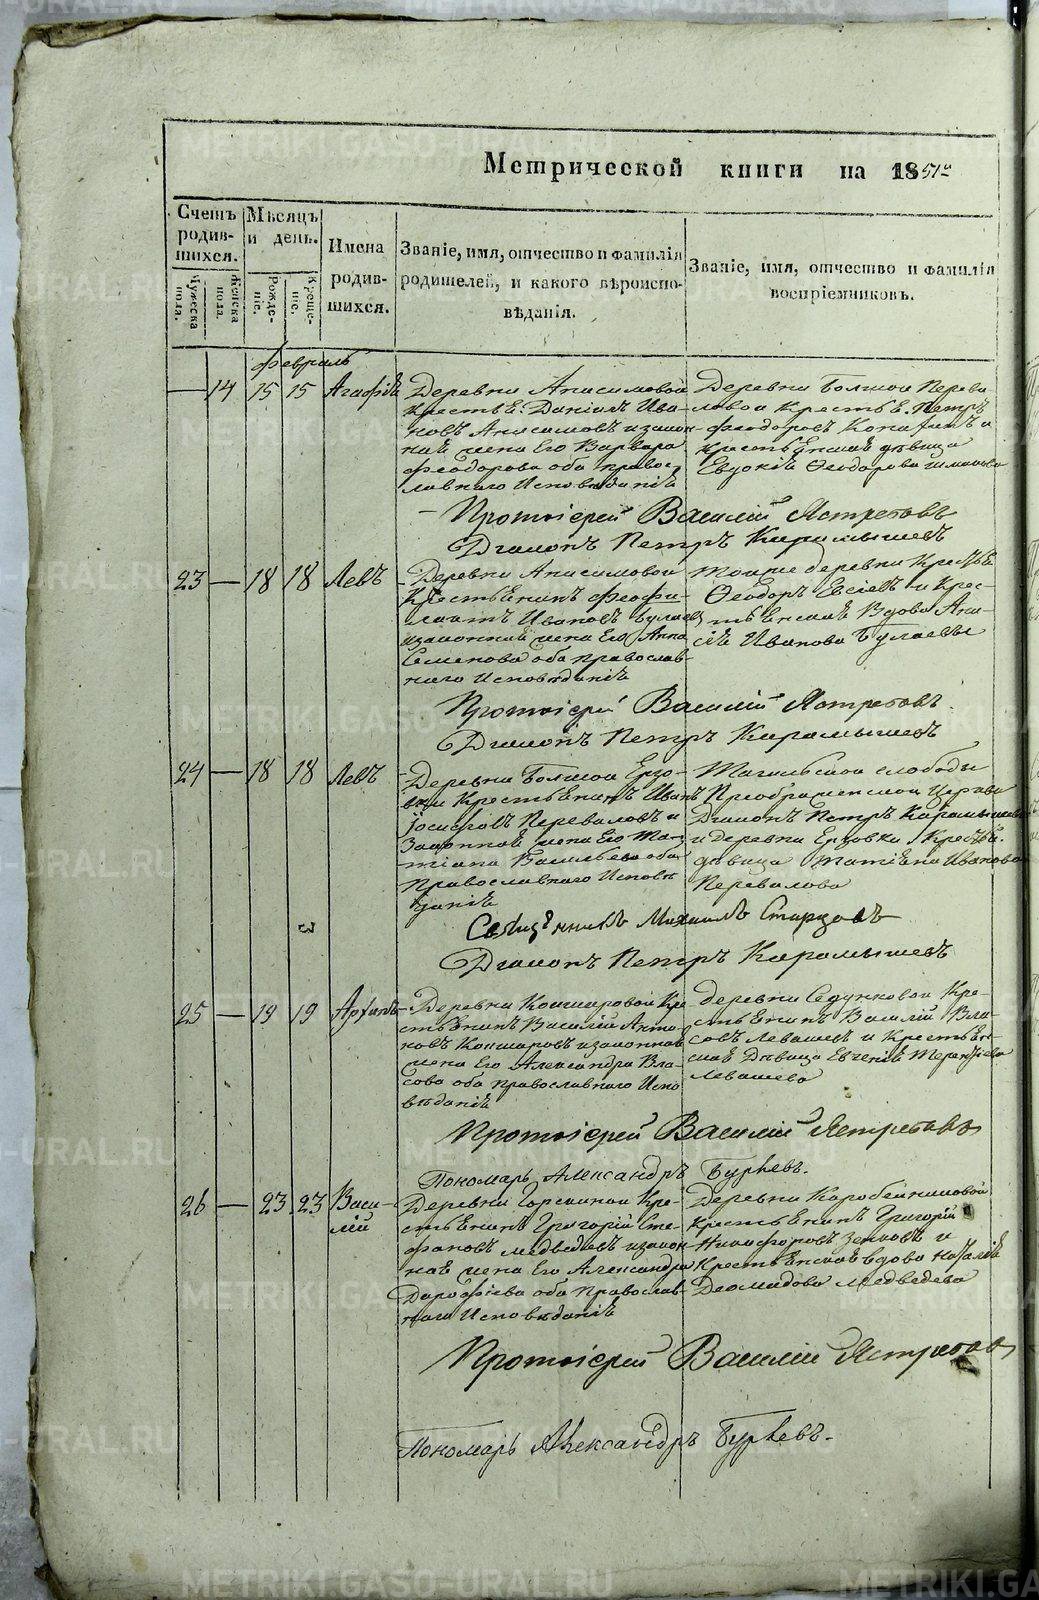 Метрической книги на 1851го
Счетъ родив-шихся.
Мѣсяцъ и день.
Имена родив-шихся.
Званіе, имя, отчество и фамилія родителей, и какого вѣроиспо-вѣданія.
Званіе, имя, отчество и фамилія воспріемниковъ.
Мужеска пола.
Женска пола.
Рожде-ніе.
Креще-ніе.
февраль
— 14 15 15 Агафія
Деревни Анисимовой
крестьен. Даніилъ Ива-
новъ Анисимовъ изакон
ная жена Его Варвара
Феодорова оба правос-
лавнаго Исповѣданія
Деревни Болшой Перева-
ловой Крестьен. Петръ
Феодоровъ
крестьенская дѣвица
Евдокія Феодорова
Протоіерей Василій Ястребовъ
Діаконъ Петръ Карамышевъ
23 — 18 18 Левъ
Деревни Анисимовой
Крестьенинъ Феофи-
лактъ Ивановъ Булаевъ
изаконная жена Его Анна
Семенова оба православ-
наго Исповѣданія
Тойже деревни Крестье
Феодоръ Евсіевъ и Крес-
тьенская Вдова Ани-
сія Иванова Булаевы
Протоіерей Василій Ястребовъ
Діаконъ Петръ Карамышевъ
24 — 18 18 Левъ
Деревни Болшой Ерзо-
вки Крестьенинъ Иванъ
Іосифовъ Переваловъ и
Законная жена Его Тат-
тіана Васильева оба
Православнаго Исповѣ
данія
Тагильской слободы
Преображенской Церкви
Діаконъ Петръ Карамышевъ
и деревни Ерзовки Крестьен.
дѣвица Татіана Иванова
Перевалова
Священникъ Михаилъ Старцовъ
Діаконъ Петръ Карамышевъ
25 — 19 19 Архипъ
Деревни Кошкаровой Кре-
стьенинъ Василій Анто-
новъ Кошкаровъ изаконная
жена Его Александра Вла-
сова оба православнаго Испо-
вѣданія
Деревни Седунковой Кре-
стьенинъ Василій Вла-
совъ Левашевъ и Крестьен-
ская Дѣвица Евгенія Терентіева
Левашева
Протоіерей Василій Ястребовъ
Пономарь Александръ Бурлевъ.
26 — 23 23 Васи-
лій
Деревни Горскиной Кре-
стьенинъ Григорій Сте-
фановъ Медведевъ изакон
ная жена Его Александра
Дорофіева оба Православ-
наго Исповѣданія
Деревни Коробейниковой
крестьенинъ Григорій
Никифоровъ Земовъ и
Крестьенская вдова Наталія
Деомидова Медведева
Протоіерей Василій Ястребовъ
Пономарь Александръ Бурлевъ.
METRIKI.GASO-URAL.RU